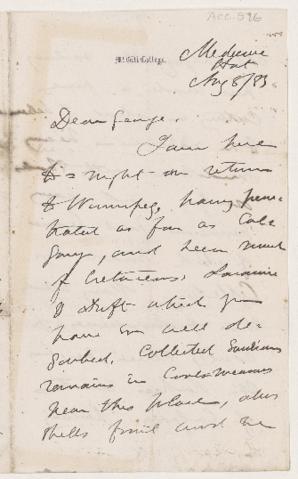 Acc. 596
McGill College.
Medicine
Hat
Aug 8/83
Dear George,
I am here
to-night on return
to Winnipeg, having pene-
trated as far as Cal-
gary, and seen much
of Cretaceous, Laramie
& Drift which you
have so well de-
scribed. Collected Saurian
remains in
near this place, also
shells and